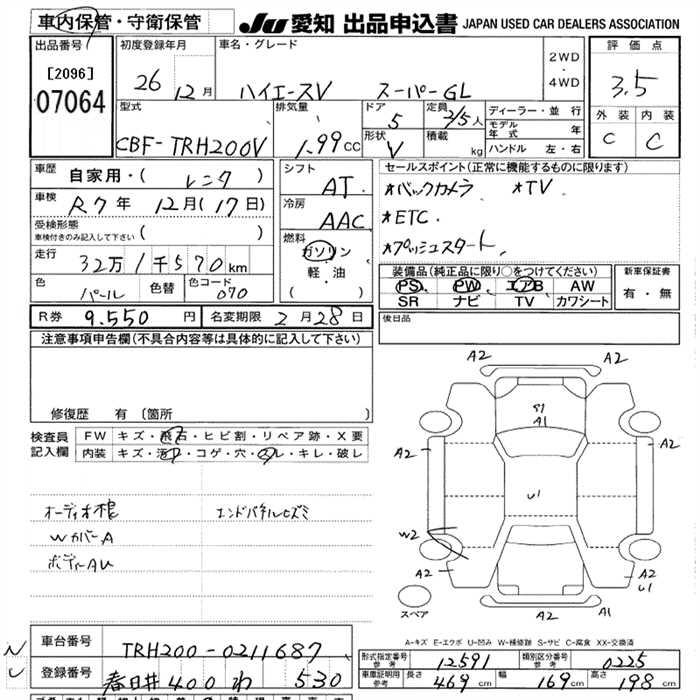 車内保管・守衛保管
JU 愛知 出品申込書 JAPAN USED CAR DEALERS ASSOCIATION
出品番号
[2096]
07064
初度登録年月
26 12月
車名・グレード
ハイエースV スーパーGL
2WD
・
4WD
評価点
3.5
外装 内装
C C
型式
CBF-TRH200V
排気量
1.99 CC
ドア
5
定員
2/5人
形状
V
積載
kg
ディーラー・並行
モデル年式 年
ハンドル 左・右
車歴 自家用・( レンタ )
車検 R7年 12月(17日)
受検形態
車検付きのみ記入して下さい ( )
走行 32万1千570km
色 パール 色替 色コード 070
シフト
AT
冷房
AAC
燃料
ガソリン
軽・油
( )
セールスポイント(正常に機能するものに限ります)
*バックカメラ *TV
*ETC
*プッシュスタート
装備品(純正品に限り○をつけてください)
PS PW エアB AW
SR ナビ TV カワシート
新車保証書
有・無
R券 9.550円 名変期限 2月28日
後日品
注意事項申告欄(不具合内容等は具体的に記入して下さい)
修復歴 有 (箇所
検査員記入欄
FW キズ・飛石・ヒビ割・リペア跡・X要
内装 キズ・汚レ・コゲ・穴・スレ・キレ・破レ
オーディオ棺 エンドパネルヒズミ
WカバーA
ボディーAU
A2 A2
S1
A1
A2 A2
U1
W2
A2 A2
U1
A1
スペア
A-キズ E-エクボ U-凹み W-補修跡 S-サビ C-腐食 XX-交換済
車台番号 TRH200-0211687
登録番号 春日井400 わ 530
型式指定番号
参考
12591
類別区分番号
参考
0225
車庫証明用
参考
長さ 469cm 幅 169cm 高さ 198cm